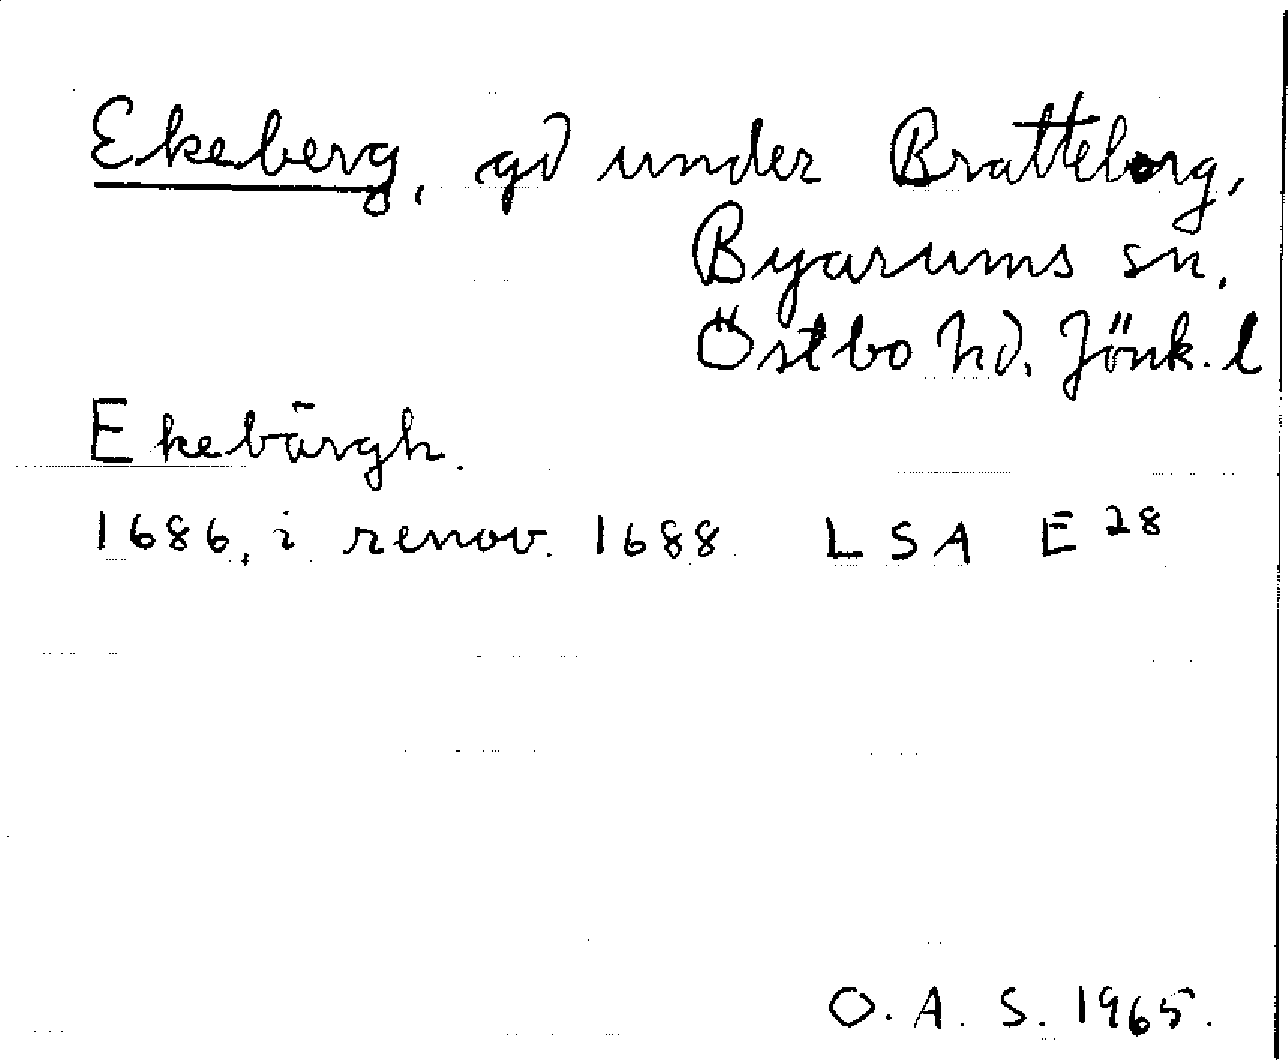 Ekeberg, gd under Bratteborg,
Byarums sn.
Östbo hd. Jönk. l
Ekebärgh.
1686, i renov. 1688. LSA E 28
O. A. S. 1965.